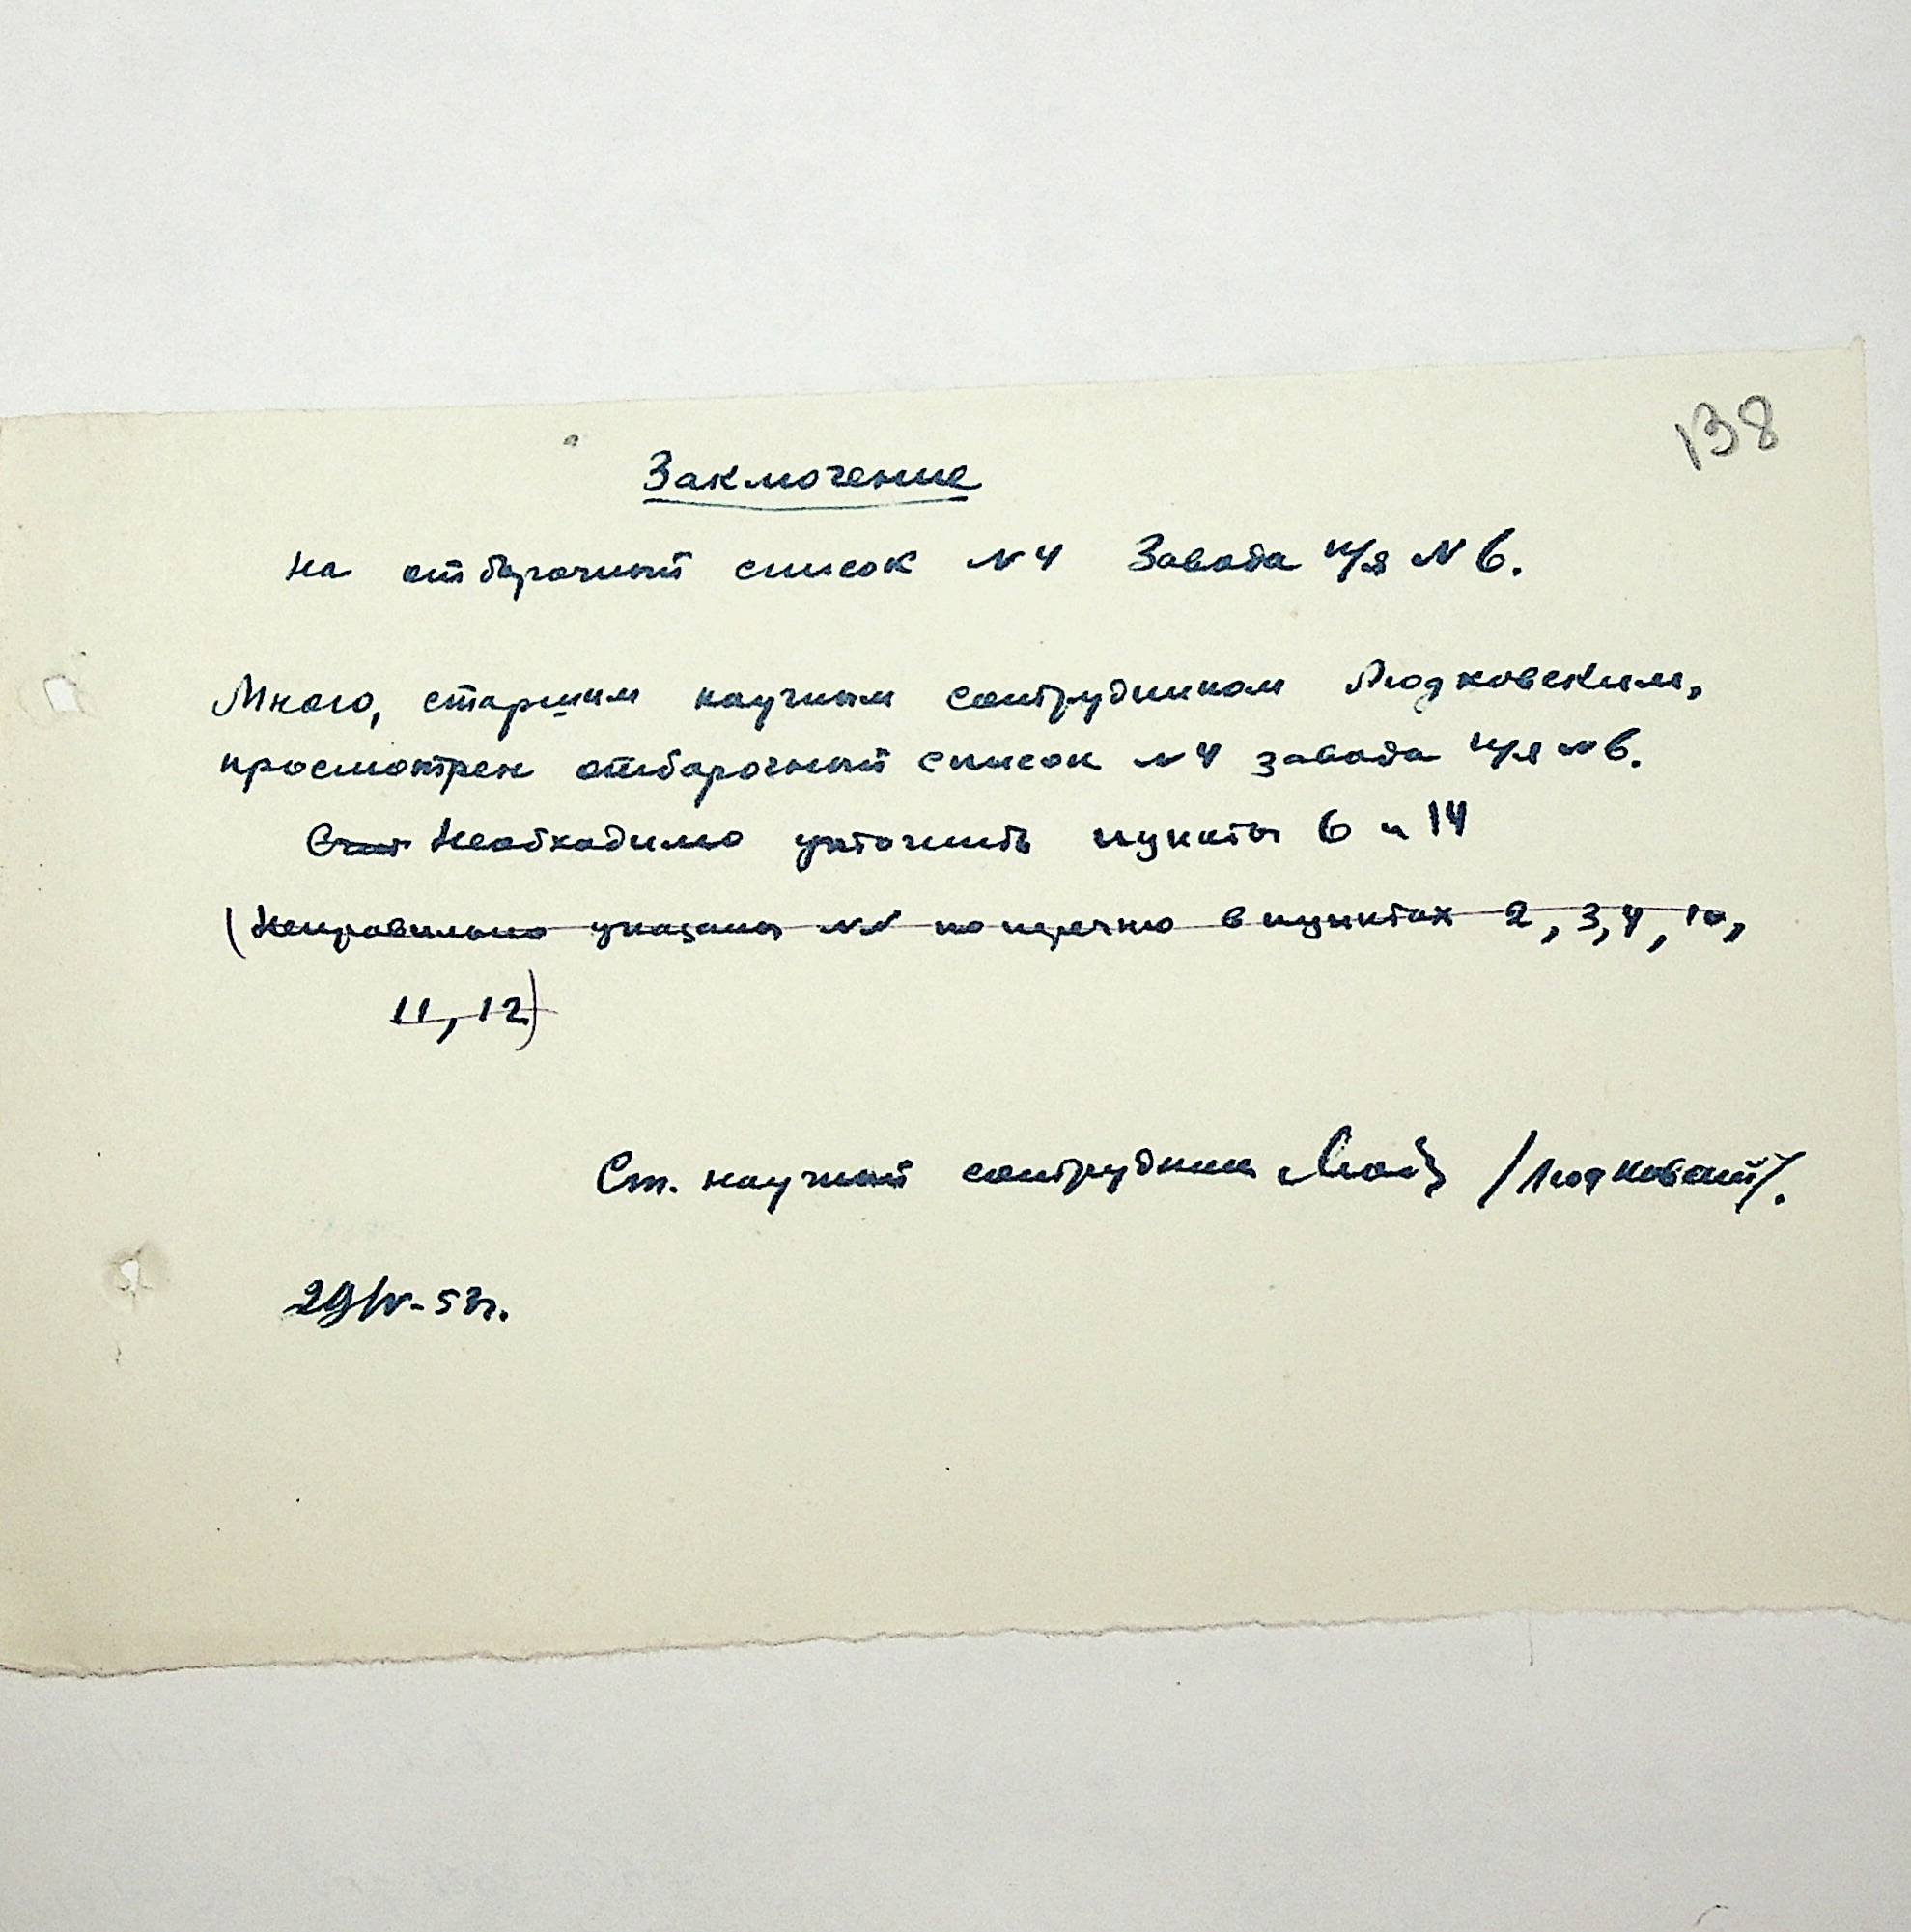 138
Заключение
на отборочный список №4 Завода п/я №6.
Мною, старшим научным сотрудником Людковским,
просмотрен отборочный список №4 завода п/я №6.
Необходимо уточнить пункты 6 и 14
(Неправильно указаны №№ по перечню в пунктах 2, 3, 4, 10,
11, 12)
Ст. научный сотрудник /Людковский/.
29/IV-53г.